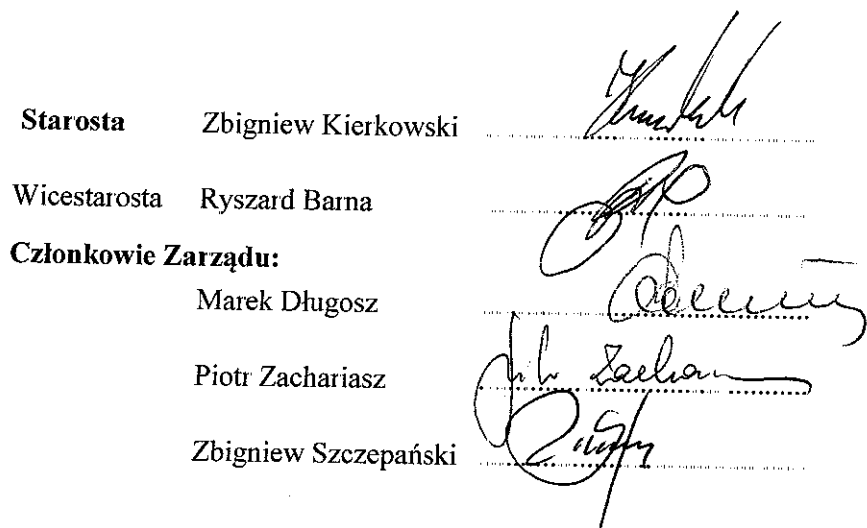 Starosta Zbigniew Kierkowski
Wicestarosta Ryszard Barna
Członkowie Zarządu:
Marek Długosz
Piotr Zachariasz
Zbigniew Szczepański